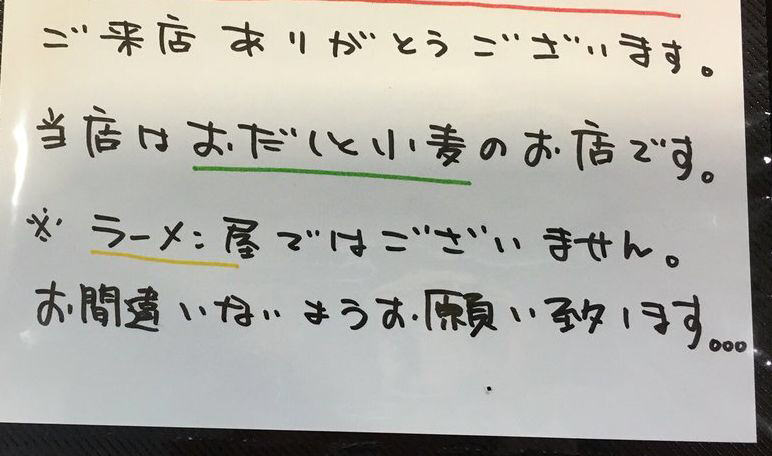 ご来店ありがとうございます。
当店はおだしと小麦のお店です。
※ラーメン屋ではございません。
お間違いないようお願い致します。。。